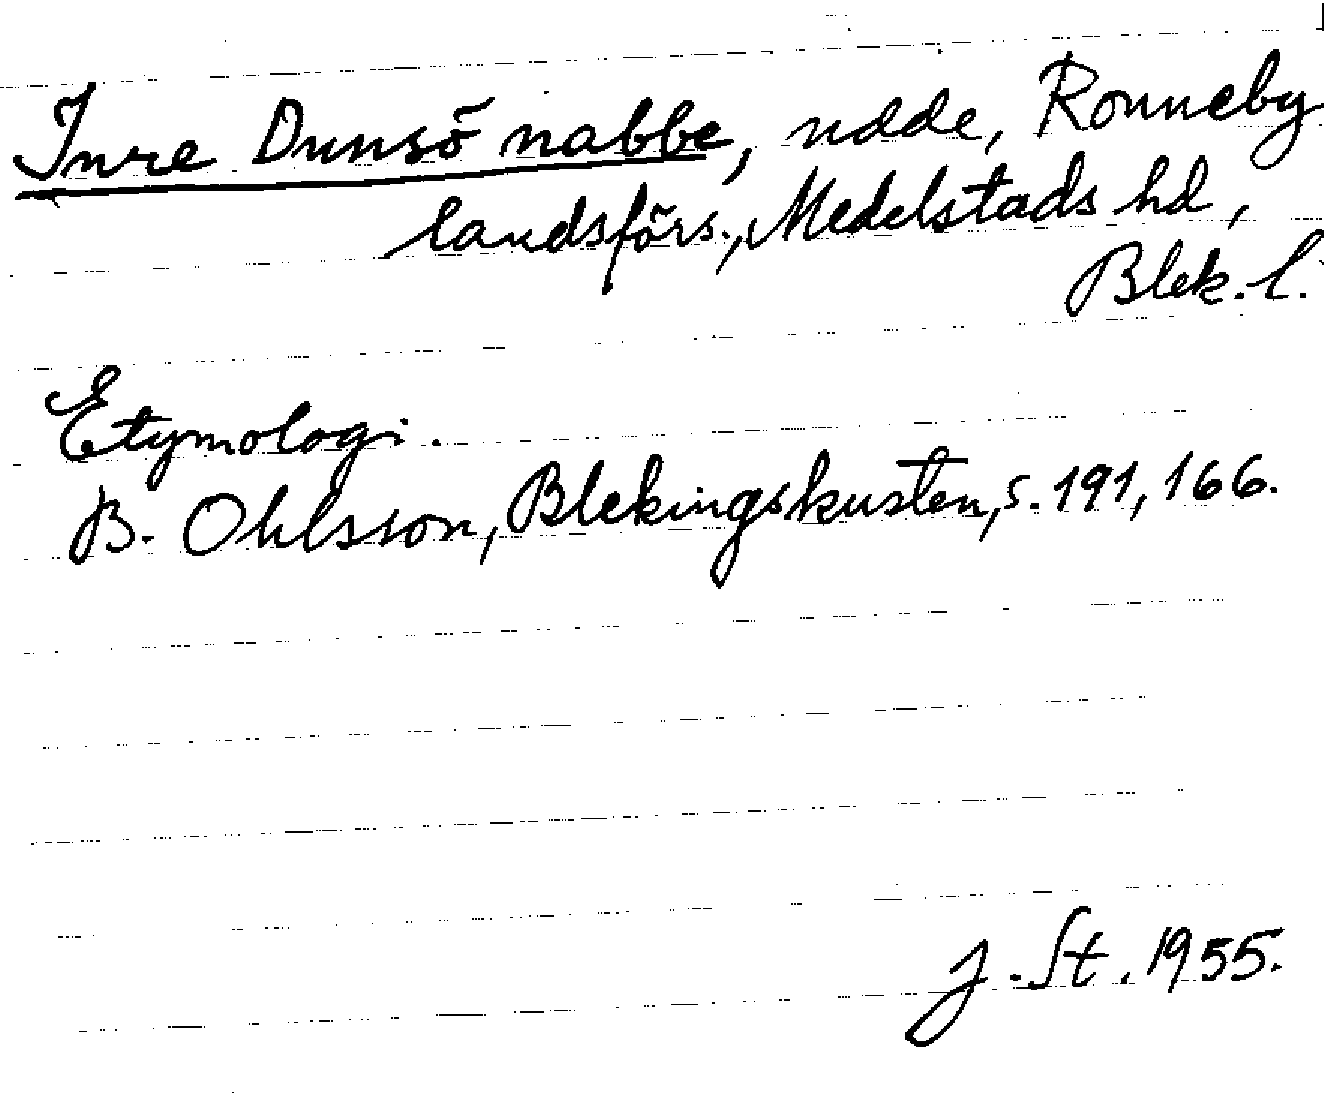 Inre Dunsö nabbe, udde, Ronneby
landsförs., Medelstads hd,
Blek. l.
Etymologi.
B. Ohlsson, Blekingskusten, s. 191, 166.
J. St. 1955.